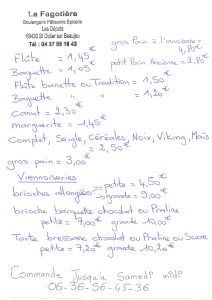 La Fagotière
Boulangerie Pâtisserie Epicerie
Les Dépots
69430 St Didier sur Beaujeu
Tél : 04 37 55 18 43
gros Pain à l'ancienne = 4,80€
petit Pain Ancienne = 2,80€
Flûte = 1,45€
Baguette = 1,05€
Flûte banette ou Tradition = 1,50€
Baguette " " = 1,20€
Canut = 2,30€
marguerite = 1,45€
Complet, Seigle, Céréales, Noix, Viking, Maïs
= 2,50€
gros pain = 3,00€
Viennoiseries
brioches allongées → petite = 4,50€
→ grande = 9,00€
brioche banquette chocolat ou Praline
petite = 7,00€ grande 10,00€
Tarte bressane chocolat ou Praline ou Sucre
petite = 7,20€ grande 10,20€
Commande Jusqu'à Samedi midi
06-36-56-45-36